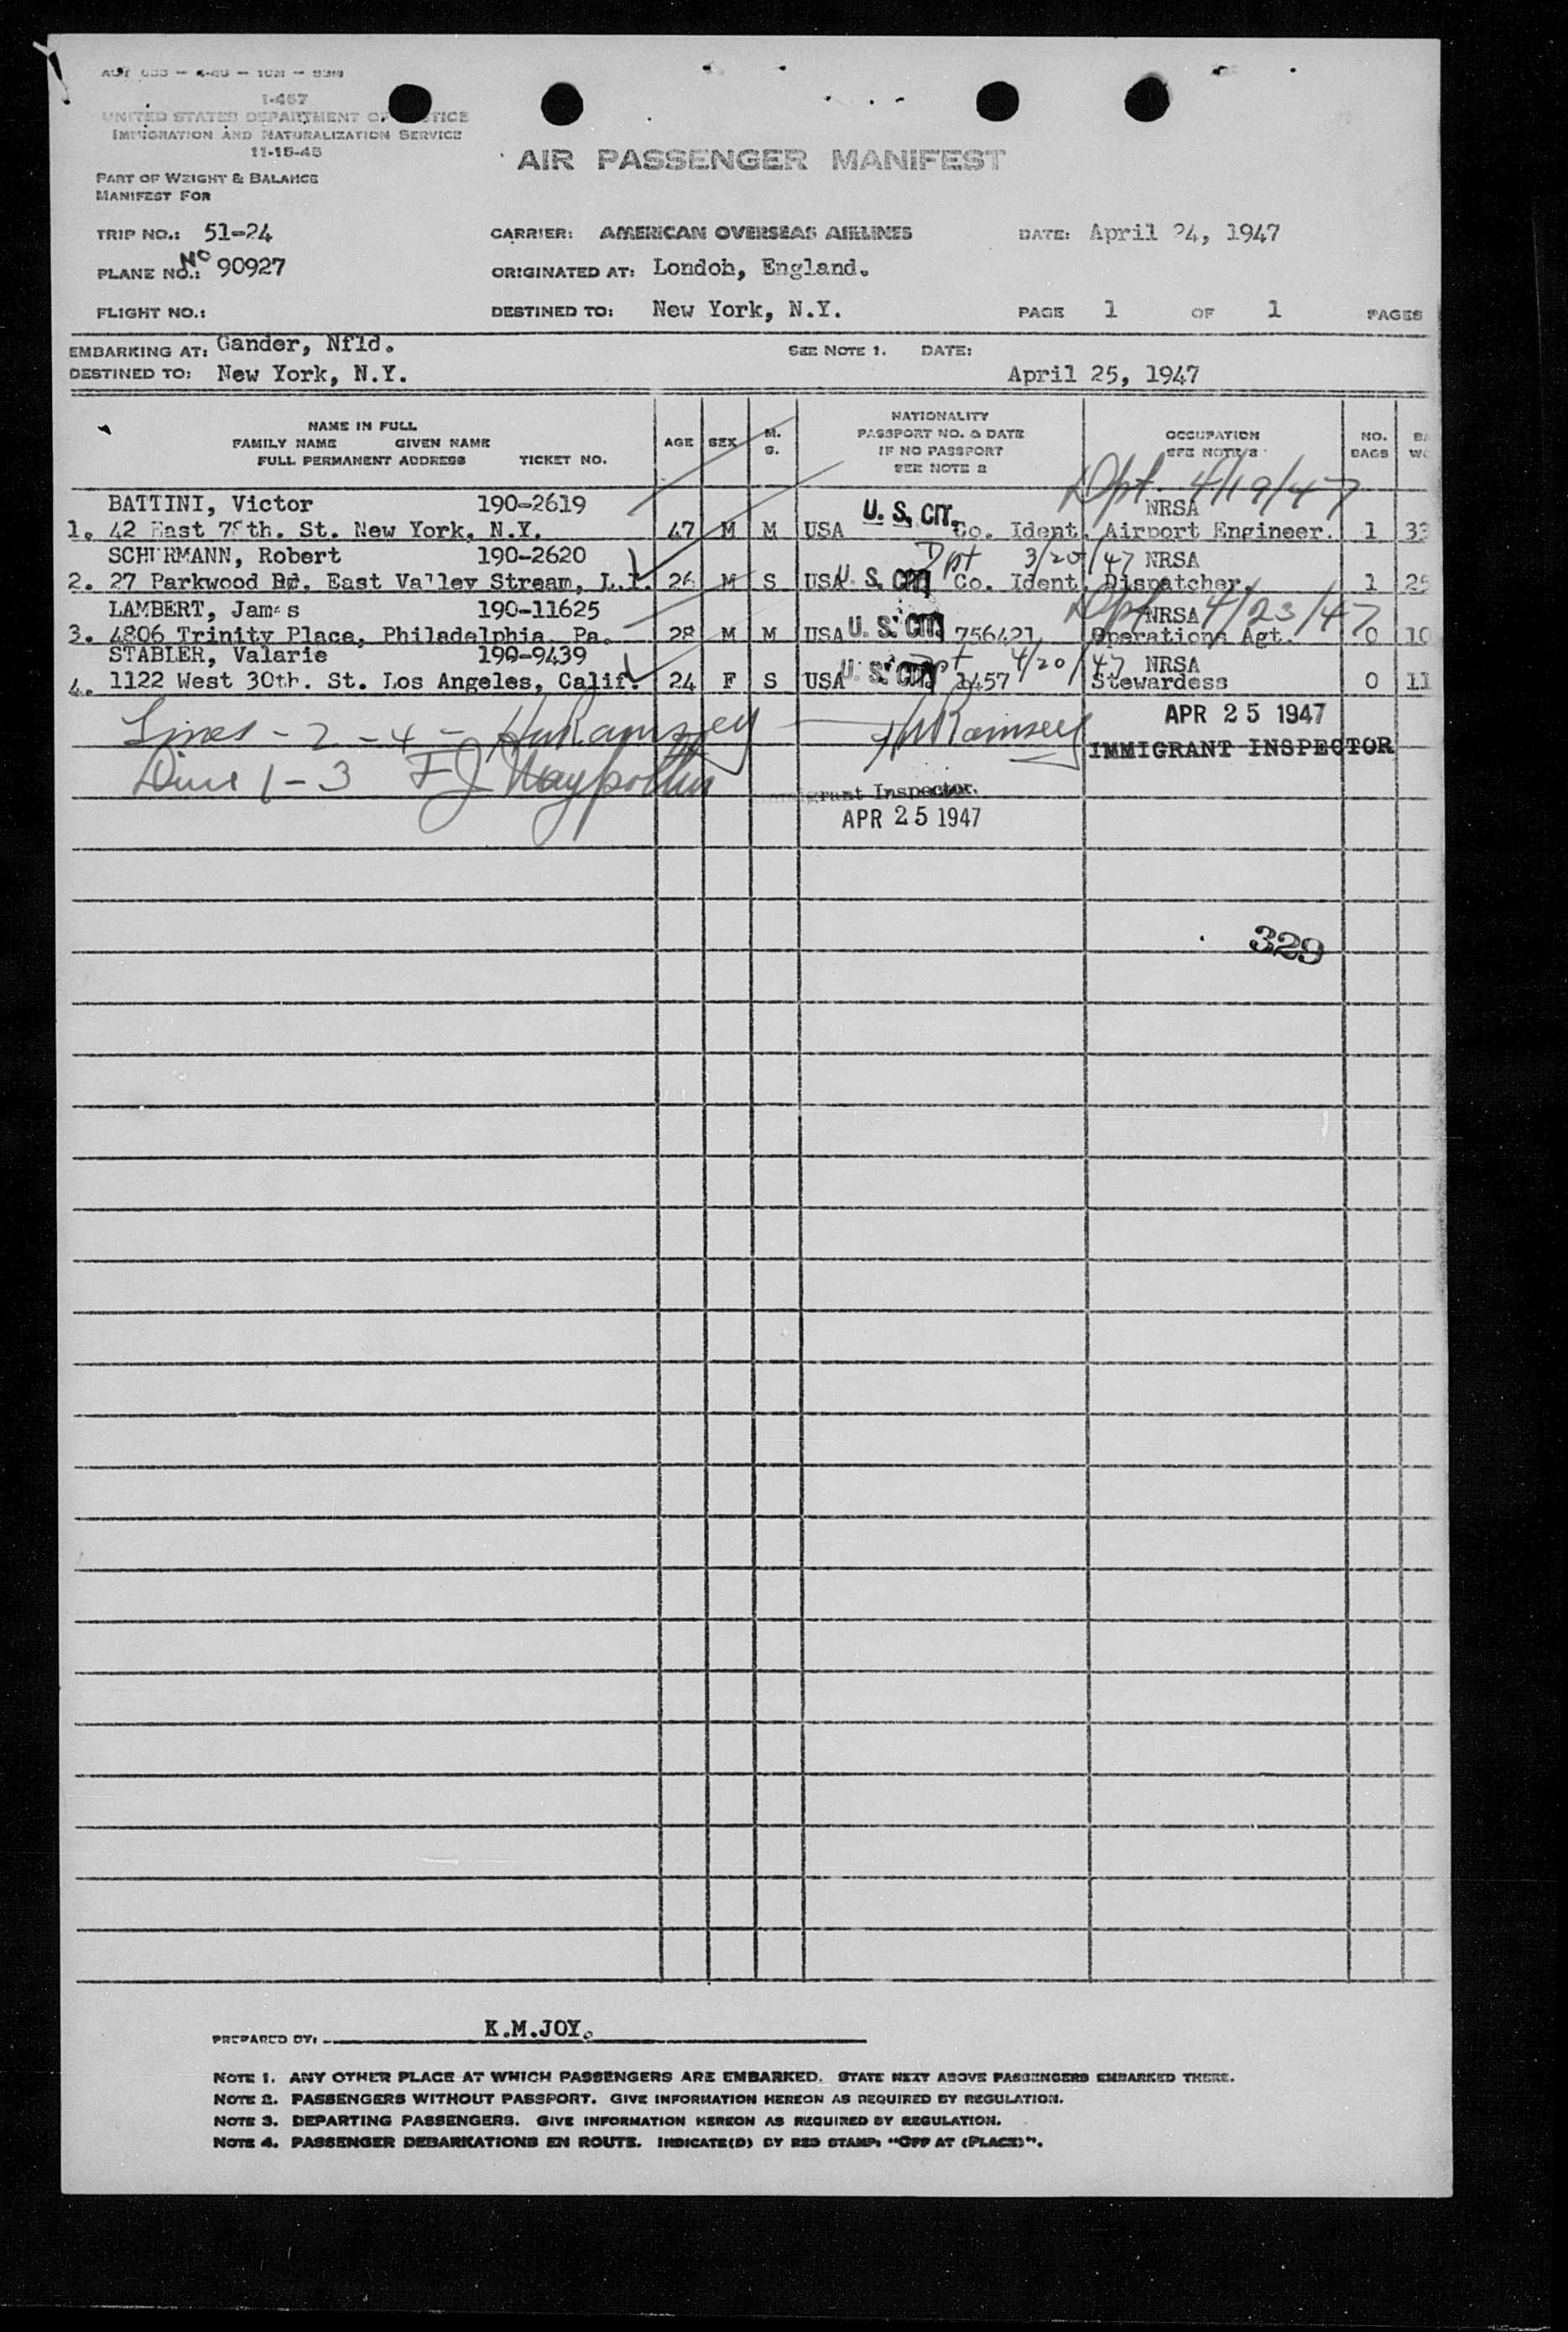 I-467
UNITED STATES DEPARTMENT OF JUSTICE
IMMIGRATION AND NATURALIZATION SERVICE
11-15-45
AIR PASSENGER MANIFEST
PART OF WEIGHT & BALANCE
MANIFEST FOR
TRIP NO.: 51-24 CARRIER: AMERICAN OVERSEAS AIRLINES DATE: April 24, 1947
PLANE NO.: NC 90927 ORIGINATED AT: London, England.
FLIGHT NO.: DESTINED TO: New York, N.Y. PAGE 1 OF 1 PAGES
EMBARKING AT: Gander, Nfld. SEE NOTE 1. DATE:
DESTINED TO: New York, N.Y. April 25, 1947
NAME IN FULL
FAMILY NAME GIVEN NAME
FULL PERMANENT ADDRESS TICKET NO.
AGE SEX M. S.
NATIONALITY
PASSPORT NO. & DATE
IF NO PASSPORT
SEE NOTE 2
OCCUPATION
SEE NOTE 3
NO. BAGS
Dpt. 4/19/47
BATTINI, Victor 190-2619 U.S. CIT. NRSA
1. 42 East 78th. St. New York, N.Y. 47 M M USA Co. Ident. Airport Engineer. 1 33
SCHURMANN, Robert 190-2620 Dpt 3/20/47 NRSA
2. 27 Parkwood Rd. East Valley Stream, L.I. 26 M S USA U.S. CIT. Co. Ident. Dispatcher 1 25
LAMBERT, James 190-11625 Dpt NRSA 4/23/47
3. 4806 Trinity Place, Philadelphia Pa. 28 M M USA U.S. CIT. 756421 Operations Agt. 0 10
STABLER, Valarie 190-9439 Dpt 4/20/47 NRSA
4. 1122 West 30th. St. Los Angeles, Calif. 24 F S USA U.S. CIT. 1457 Stewardess 0 11
Lines - 2 - 4 - HM Ramsey HM Ramsey APR 25 1947
IMMIGRANT INSPECTOR
Line 1 - 3 FJ
Immigrant Inspector.
APR 25 1947
329
PREPARED BY: K.M.JOY.
NOTE 1. ANY OTHER PLACE AT WHICH PASSENGERS ARE EMBARKED. STATE NEXT ABOVE PASSENGERS EMBARKED THERE.
NOTE 2. PASSENGERS WITHOUT PASSPORT. GIVE INFORMATION HEREON AS REQUIRED BY REGULATION.
NOTE 3. DEPARTING PASSENGERS. GIVE INFORMATION HEREON AS REQUIRED BY REGULATION.
NOTE 4. PASSENGER DEBARKATIONS EN ROUTE. INDICATE(D) BY RED STAMP: "OFF AT (PLACE)".